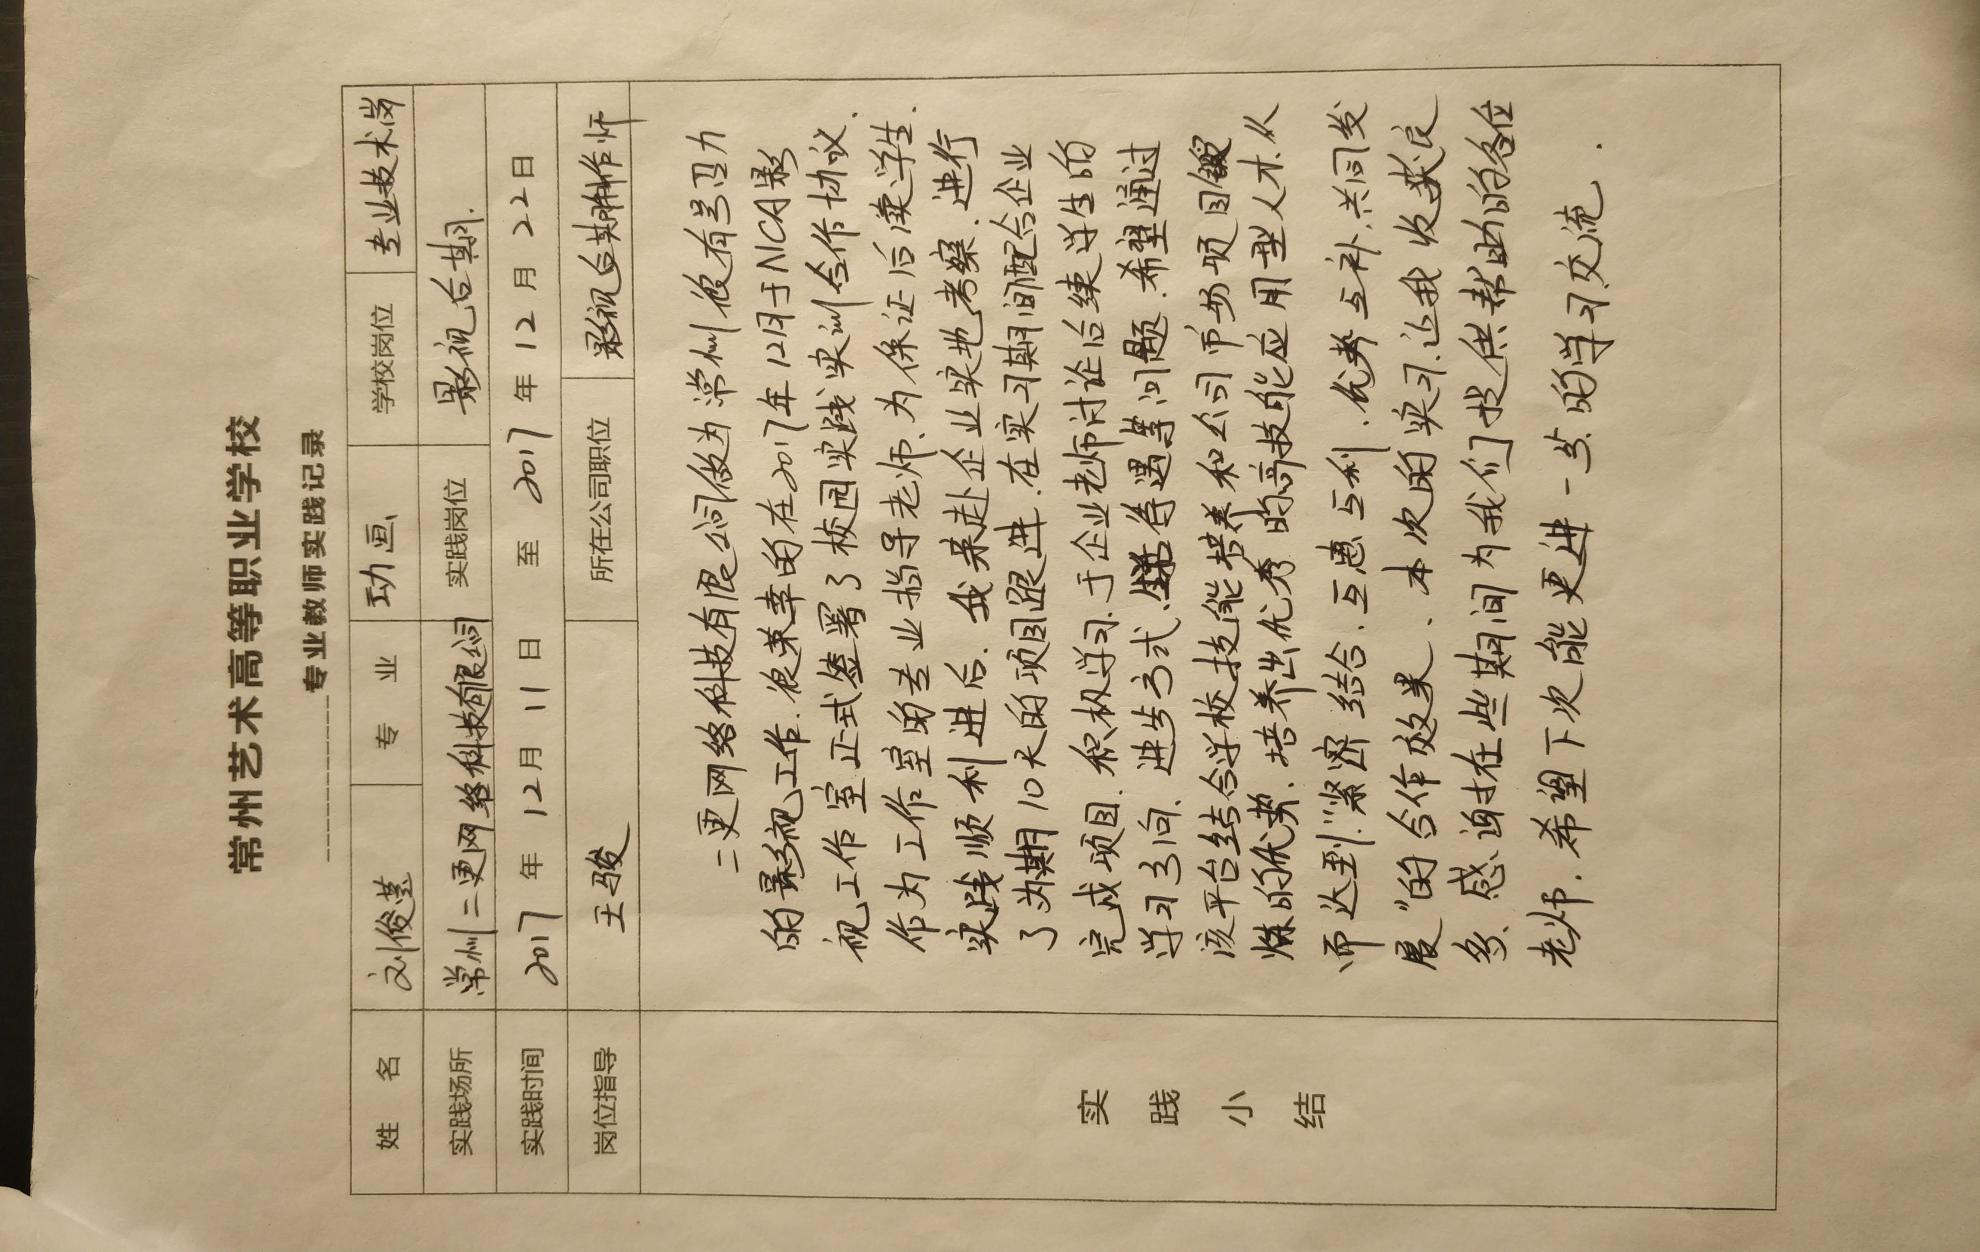 常州艺术高等职业学校
专业教师实践记录
姓 名 刘俊莹 专 业 动画 学校岗位 专业技术岗
实践场所 常州二更网络科技有限公司 实践岗位 影视后期
实践时间 2017 年 12 月 11 日 至 2017 年 12 月 22 日
岗位指导 王骏 所在公司职位 影视后期制作师
实践小结
二更网络科技有限公司做为常州很有号召力
的影视工作.很荣幸的在2017年12月于NICA影
视工作室正式签署了校园实践实训合作协议.
作为工作室的专业指导老师.为保证后漠学生.
实践顺利进后.我来赴企业实地考察.进行
了为期10天的项目跟进.在实习期间配合企业
完成项目.积极学习.于企业老师讨论后续学生的
学习方向.进步方式、生活待遇等问题.希望通过
该平台结合学校技能培养和公司币场项目锻
炼的优势.培养出优秀的高技能应用型人才.从
而达到"紧密结合.互惠互利.优劣互补.共同发
展"的合作效果、本次的实习.让我收获良
多、感谢在些期间为我们提供帮助的各位
老师.希望下次能更进一步的学习交流.